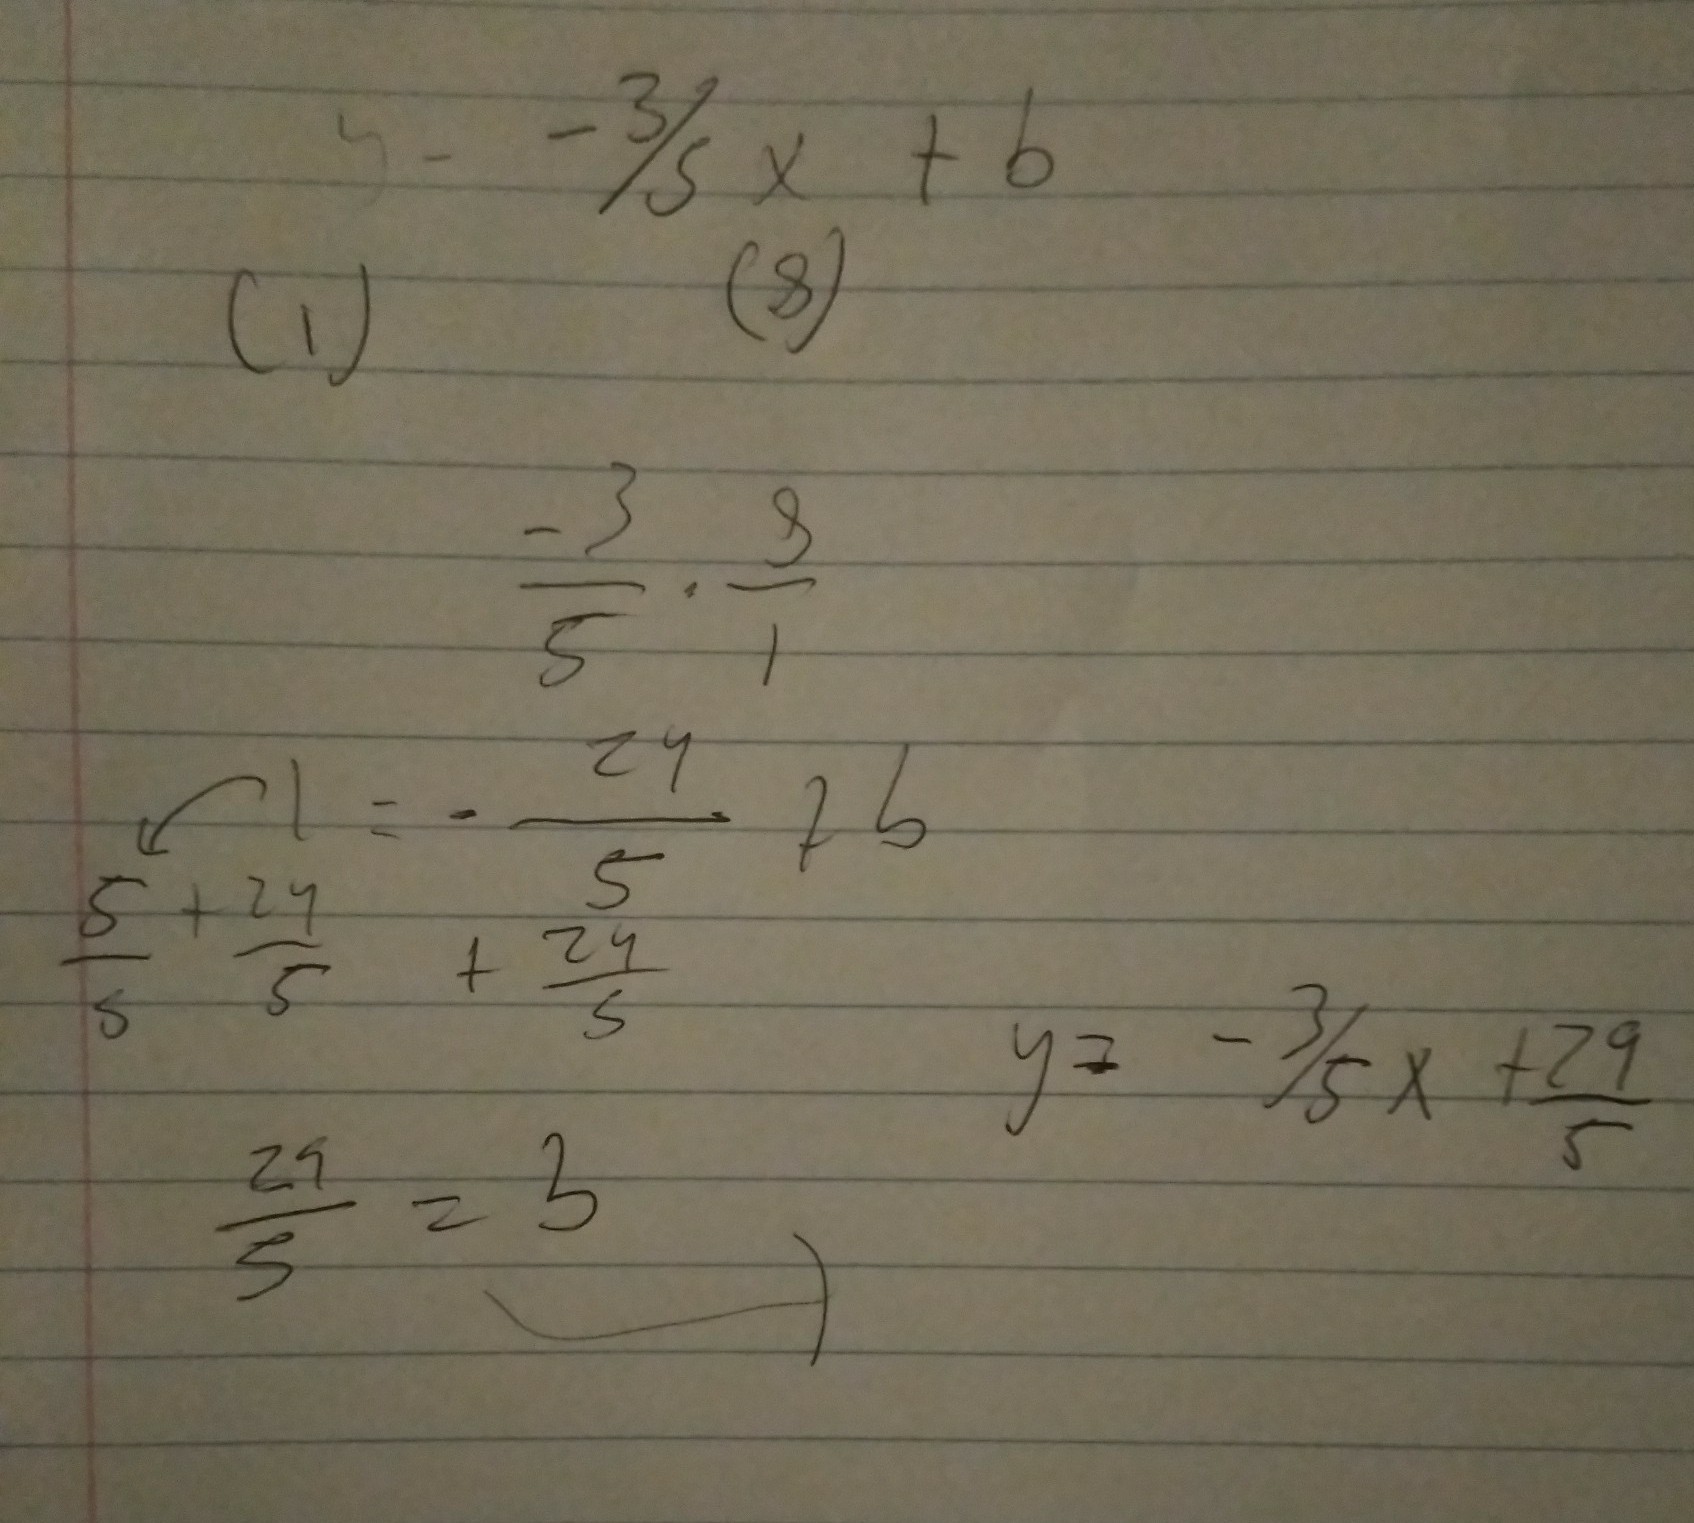 y = -3/5 x + b
(1) (8)
-3/5 · 8/1
1 = - 24/5 + b
5/5 + 24/5 + 24/5
y = -3/5 x + 29/5
29/5 = b